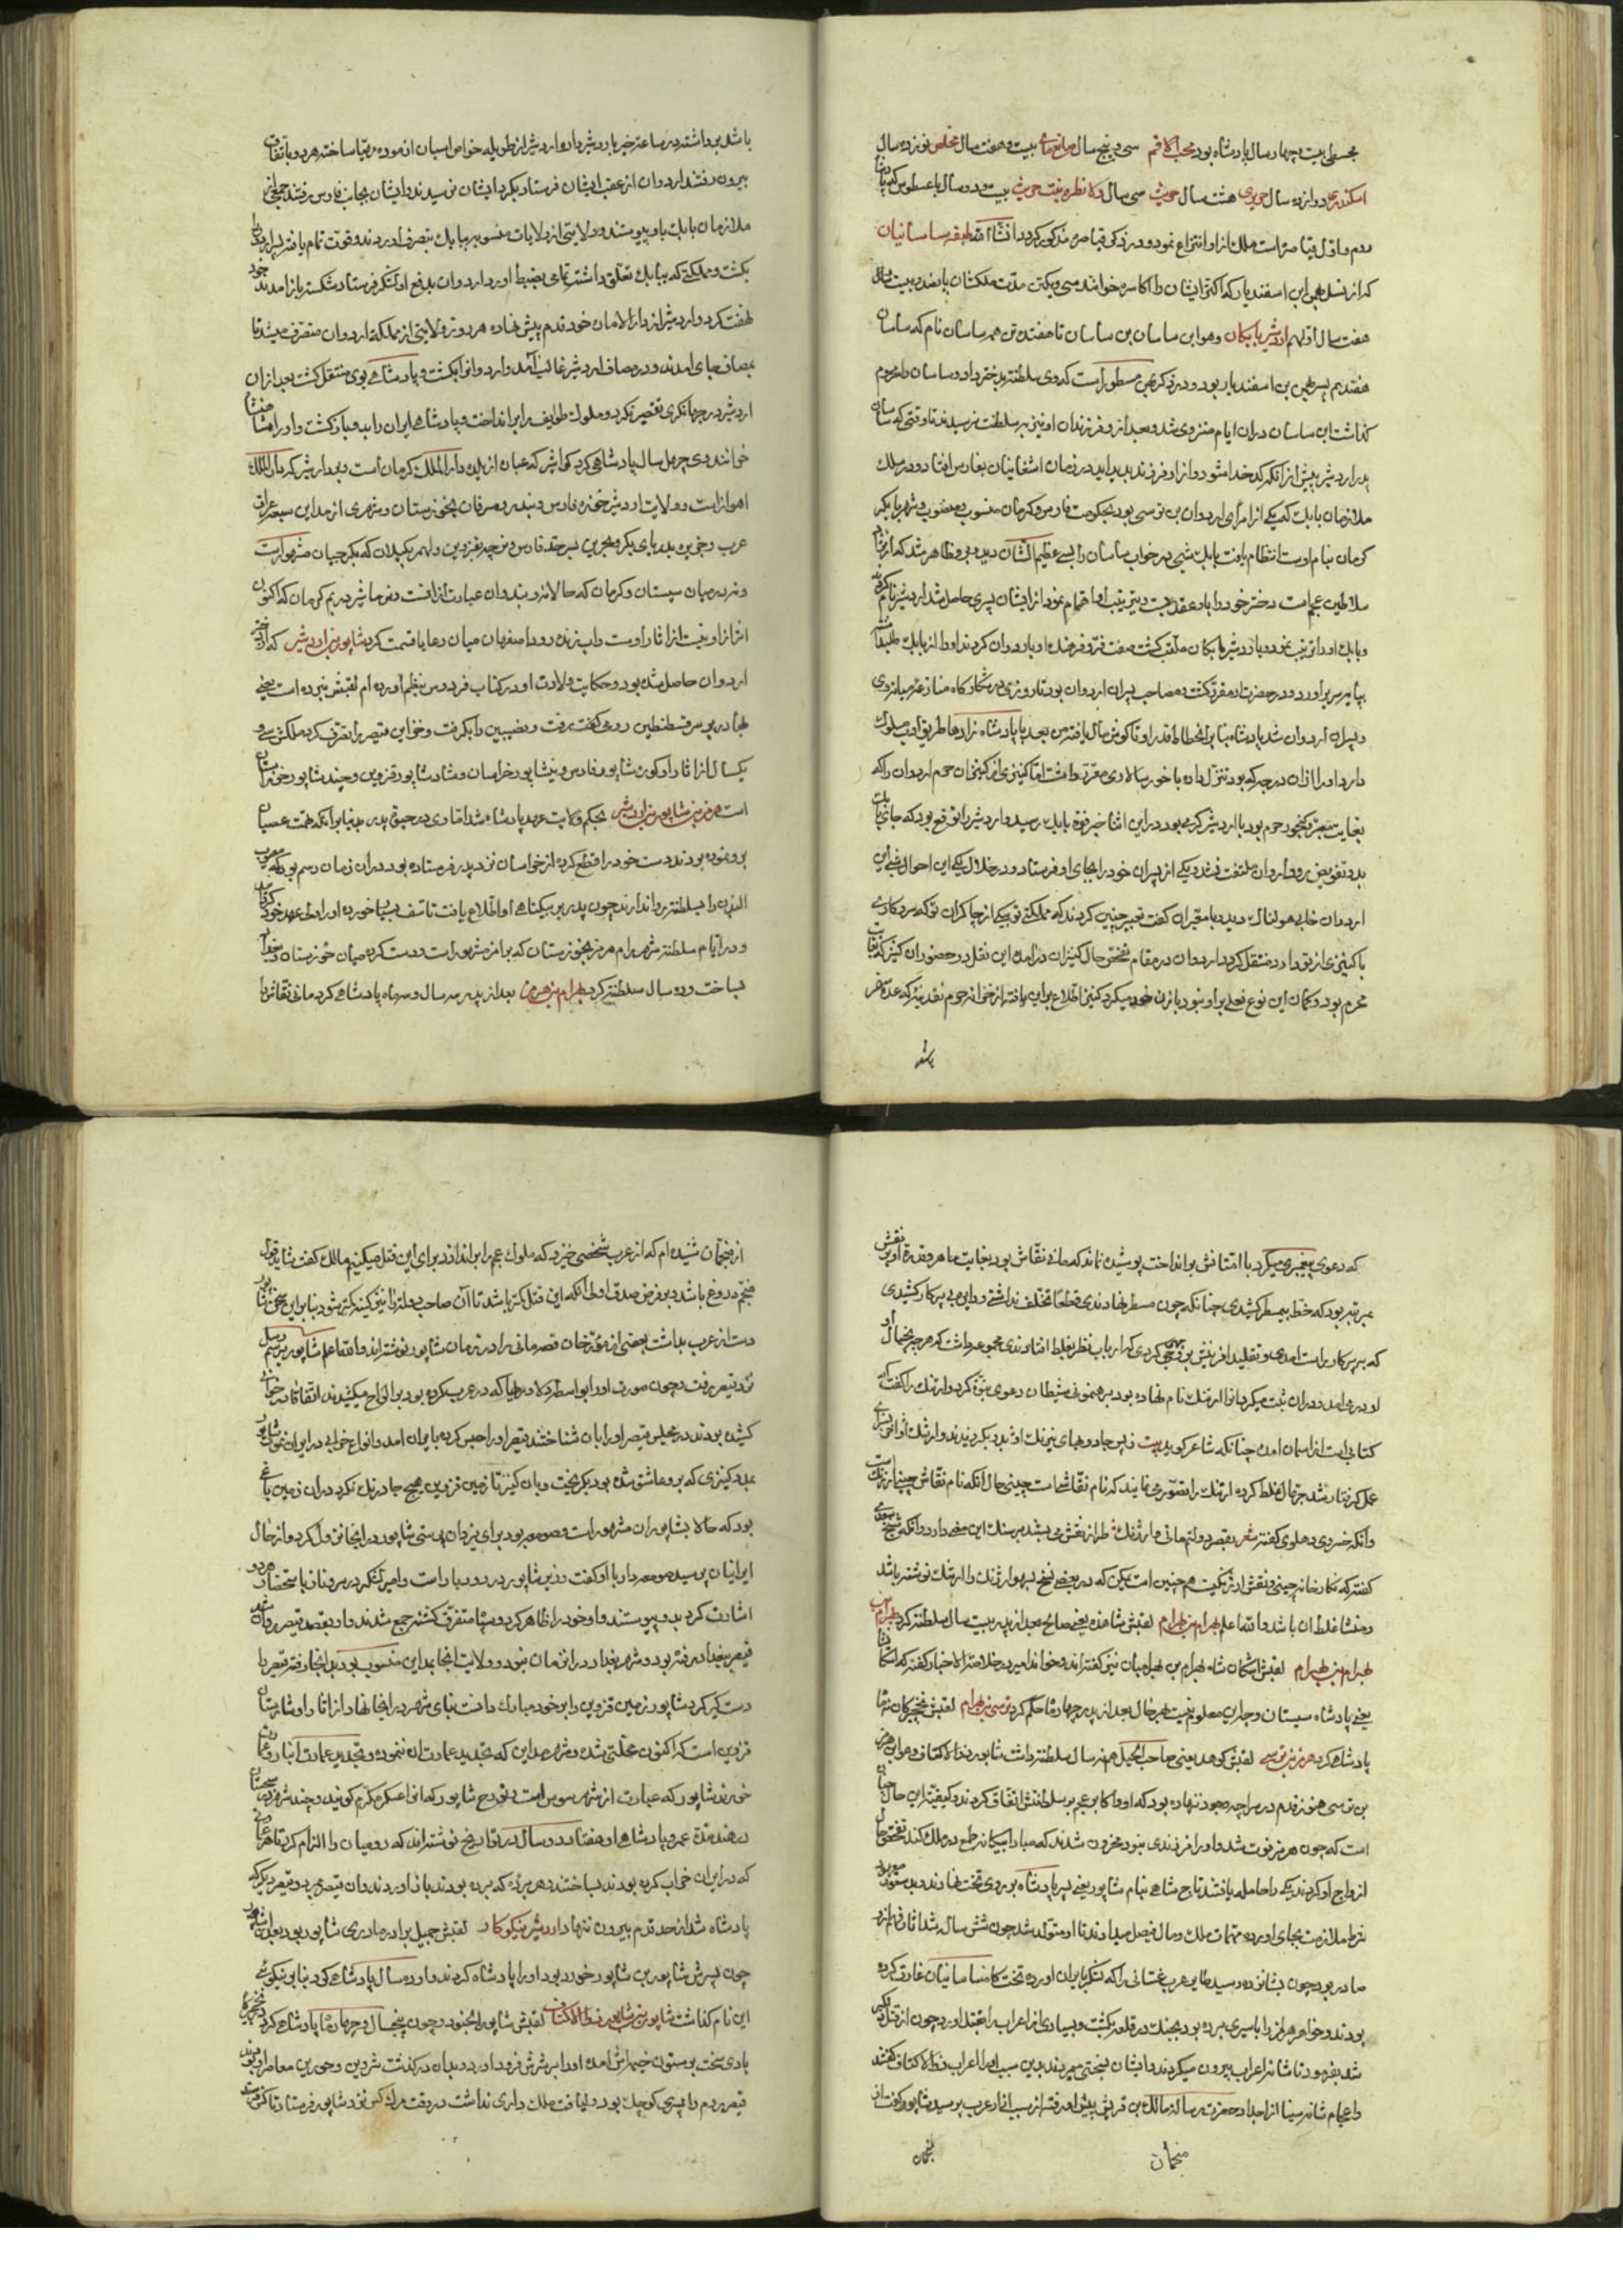 مجسطی بیست و چهار سال پادشاه بود محب الاقم سی و پنج سال صانع بیست و هفت سال مخلص نوزده سال
اسکندری دوازده سال هشت سال سی سال قلانطره بنت بیست و دو سال باغسطوس که پادشاه
روم و اول قیاصره است ملک از او انتزاع نمود و در ذکر قیاصره مذکور کردد انشاء الله طبقه ساسانیان
که از نسل بهمن ابن اسفندیار که اکثر ایشان را اکاسره خوانند سی و یکتن مدت ملکشان پانصد و بیست و
هفت سال اولهم اردشیر بابکان و هو ابن ساسان بن ساسان تا هفت تن همه ساسان نام که ساسان
هفتدیم پسر بهمن بن اسفندیار بود و در ذکر بهمن مسطور است که وی سلطنت بدختر داد و ساسان را محروم
کذاشت این ساسان دران ایام منزوی شد و بعد از و فرزندان او نیز بر سلطنت نرسیدند تا وقتی که ساسان
پدر اردشیر پیش از انکه کدخدا شود و از او فرزند پدید آید در زمان اشغانیان بفارس افتاد و در سلک
ملازمان بابک که یکی از امرای اردوان بن نرسی بود بحکومت فارس و کرمان منسوب و منصوب و شهر بابک
کرمان بنام اوست انتظام یافت بابک شبی در خواب ساسان را بسی عظیم الشان دید و بروی ظاهر شد که از نژاد
سلاطین عجم است دختر خود را باو عقد بست و در تربیت او اهتمام نمود از ایشان پسری حاصل شد اردشیر نام کردند
و بابک او را تربیت نمود و باردشیر بابکان ملقب کشت صفت فر و فرهنک او باردوان کردند او را از بابک طلبید
بپایه سریر آورد و در حضرت او مقرر کشت و مصاحب پسران اردوان بود تا روزی در شکارکاه منازعه میان وی
و پسران اردوان شد پادشاه بنابر انحطاط قدر او تا کوش مال یافته من بعد با پادشاه زادها طریق ادب مسلوک
دارد او را از آن درجه که بود تنزل داده با خور سالاری مقرر داشت اما کنیزی از کنیزان حرم اردوان را که
بغایت معتبر و کنجور حرم بود با اردشیر کرمی بود در این اثنا خبر فوت بابک رسید و اردشیر را توقع بود که جای بابک
بدو تفویض رود اردوان ملتفت نشد و یکی از پسران خود را بجای او فرستاد و در خلال یکی این احوال شبی این
اردوان خوابی هولناک دید و با معبران کفت تعبیر چنین کردند که مملکت تو بیکی از چاکران تو که سر و کاری
با کنیزی از تو دارد منتقل کردد اردوان در مقام تفحص حال کنیزان درآمد این نقل در حضور آن کنیز که
محرم بود و کمان این نوع فعلی بر او نبود با زن خود میکرد کنیز اطلاع بر این یافته از خزانه حرم نقدینه که عده سفر
باشد
باشد برداشته در ساعت خبر باردشیر داد و اردشیر از طویله خواص اسبان آزموده مهیا ساخته هر دو باتفاق
بیرون رفتند اردوان از عقب ایشان فرستاد بکرد ایشان نرسیدند و ایشان بجانب فارس رفتند
ملازمان بابک باو پیوستند و ولایتی از ولایات منسوبه ببابک بتصرف آوردند و قوت تمام یافته پسر اردوان را
بکشت و مملکتی که ببابک تعلق داشت تمامی بضبط آورد اردوان بدفع او لشکر فرستاد شکسته باز آمدند خود
نهضت کرد و اردشیر از دار الامان خود قدم پیش نهاده هر روز ولایتی از مملکت اردوان متصرف میشد تا
بمصاف جای آمدند و در مصاف اردشیر غالب آمد و اردوان را بکشت و پادشاهی بوی منتقل کشت بعد از ان
اردشیر در جهانکیری تقصیر نکرد و ملوک طوایف را برانداخت و پادشاهی ایران را بدو باز کشت و او را شاهنشاه
خوانند وی چهل سال پادشاهی کرد کواشیر که عبارت از بلده دار الملک کرمان است و بهاردشیر که دار الملک
اهواز است و ولایت اردشیر خوره فارس و بند رود مسرقان بخوزستان و شهری از مداین سبعه عراق
عرب و جزیره بدریای بکر و بحرین بسرحد فارس و نرجه بقزوین و رامهر بکیلان که بکرجیان مشهور است
و نرد میان سیستان و کرمان که حالا نرو بندوان عبارت از آنست و نرماشیر در بم کرمان که اکنون
اثر از او نیست از آثار اوست و آب زنده رود اصفهان میان رعایا قسمت کرد شاپور بن اردشیر که از دختر
اردوان حاصل شده بود و حکایت ولادت او در کتاب فردوس بنظم آورده ام لقبش نبرده است یعنی
بهادر بر سر قسطنطین رومی کفت برفت و نصیبین را بکرفت و خزاین قیصر را تصرف کرد ملکش سی و
یکسال از آثار او کوره شاپور فارس و نیشاپور خراسان و شادشاپور قزوین و جندشاپور خوزستان
است هرمز بن شاپور بن اردشیر بحکم ولایت عهد پادشاه شد اما وی در حیوة پدر بنابر آنکه تهمت عصیان
برو نموده بودند دست خود را قطع کرده از خراسان نزد پدر فرستاده بود دران زمان رسم بود که معیوب
البدن را بسلطنت بر ندارند چون پدر بر بیکناهی او اطلاع یافت تاسف بسیار خورد و او را ولی عهد خود کردانید
و در ایام سلطنت شهر رام هرمز بخوزستان که برامز مشهور است و دستکره میان خوزستان و بغداد
بساخت و دو سال سلطنت کرد بهرام بن هرمز بعد از پدر سه سال و سه ماه پادشاهی کرد مانی نقاش را
که دعوی پیغمبری میکرد با امتانش برانداخت پوشیده نماند که مانی نقاش بود بغایت ماهر و قدرة او بر نقش
بمرتبه بود که خط بی مسطر کشیدی چنانکه چون مسطر نهادندی قطعا تخلف نداشتی و دایره بی پرکار کشیدی
که بر پرکار راست آمدی و تقلید آفرینش بر وجهی کردی که ارباب نظر بغلط افتادندی مجموعه داشت که هر چه بخیال
او در می آمد در ان ثبت میکرد و انرا ارتنک نام نهاده بود برهنمونی شیطان دعوی نبوت کرد و ارتنک را کفت که
کتابی است از آسمان آمده چنانکه شاعر کوید بیت
عمل کرفتار شد جهال غلط کرده ارتنک را تصور می نمایند که نام نقاشی است چینی حال آنکه نام نقاش چینی ارژنک است
وآنکه خسروی دهلوی کفته شعر بقصر دولتم مانی و ارژنک طراز نقش می بستند بر سنک این معنی دارد وآنکه شیخ سعدی
کفته که نکارخانه چینی و نقش ارتنکیست هم چنین است لیکن که در بعضی نسخ بسهو ارژنک را ارتنک نوشته باشد
و منشا غلط ان باشد والله اعلم بهرام بن بهرام لقبش شاهنده یعنی صالح بعد از پدر بیست سال سلطنت کرد بهرام بن
بهرام بن بهرام لقبش سکان شاه بهرام بن بهرامیان نیز کفته اند و خواندمیر در خلاصة الاخبار کفته که سکانشاه
یعنی پادشاه سیستان وجه این معلوم نیست بهر حال بعد از پدر چهار ماه حکم کرد نرسی بن بهرام لقبش نخجیرکان نه سال
پادشاهی کرد هرمز بن نرسی لقبش کوهبد یعنی صاحب الجبل هم نه سال سلطنت داشت شاپور ذو الاکتاف وهو ابن هرمز
بن نرسی هنوز قدم در سراچه وجود ننهاده بود که او و اکابر عجم بر سلطنتش اتفاق کردند و کیفیت این حال چنان
است که چون هرمز فوت شد و او را فرزندی نبود محزون شدند که مبادا بیکانه طمع در ملک کند تفحص حال
ازواج او کردند یکی را حامله یافتند تاج شاهی بنام شاپور یعنی پسر پادشاه بر روی تخت نهادند و بدستور معهود
شرط ملازمت بجای آورده مهمات ملک و مال فیصل میدادند تا او متولد شد چون شش ساله شد آثار فهم از و
صادر بود چون بشانزده رسید طایر عرب غسانی را که لشکر بایران آورده تختکاه ساسانیان غارت کرده
بودند و خواهر هرمز را باسیری برده بود بجنک در قلعه بکشت و بسیاری از اعراب را بقتل آورد چون از قتل
شد بفرمود تا شانه اعراب بیرون میکردند و ایشان بسختی میمردند بدین سبب او را اعراب ذو الاکتاف کفتند
و اعجام شانه سنبا از اجداد حضرت رسالة مالک بن قریش پیش او رفته از سبب آزار عرب پرسید شاپور کفت از
منجمان
منجمان
از منجمان شنیده ام که از عرب شخصی خیزد که ملوک عجم را براندازد برای این قتل میکنم مالک کفت شاید قول
منجم دروغ باشد و بر فرض صدق اولی آنکه این قتل کمتر باشد تا آن صاحب دولت را نیز کینه کمتر شود بنابر این سخن شاپور
دست از عرب بداشت بعضی از مورخان قصه مانی را در زمان شاپور نوشته اند والله اعلم شاپور برسم رسل
نزد قیصر رفت و چون صورت او را بواسطه دلاوریها که در عرب کرده بود بر الواح میکشیدند اتفاقا در خوانی
کشیده بودند در مجلس قیصر او را بان شناختند قیصر او را حبس کرده بایران آمد و انواع خرابی در ایران نمود شاپور
بمدد کنیزی که برو عاشق شده بود بکریخت و بان کنیز تا زمین قزوین هیچ جا درنک نکرد دران زمین باغی
بود که حالا بشاپوران مشهور است و صومعه بود برای یزدان پرستی شاپور در انجا نزول کرد و از حال
ایرانیان پرسید صومعه دار با او کفت وزیر شاپور در رودبار است و امیر لشکر در باستحضار هر دو
اشارت کرد بدو پیوستند و او خود را ظاهر کرد و سپاه متفرق کشته جمع شدند و او بقصد قیصر روان شد
قیصر ببغداد رفته بود و شهر بغداد در آن زمان نبود و ولایت آنجا بمداین منسوب بود بدانجا رفته قیصر را
دستکیر کرد شاپور زمین قزوین را بر خود مبارک دانست بنای شهر در انجا نهاد از آثار او شارستان
قزوین است که اکنون محلتی شده و شهر مداین که تجدید عمارت ان نموده و تجدید عمارت انبار و بنای
خوره شاپور که عبارت از شهر سوس است و برج شاپور که انرا عسکر مکرم کویند و چند شهر در سجستان
و هند مدة عمر و پادشاهی او هفتاد و دو سال در تواریخ نوشته اند که رومیان را الزام کرد تا هر عمارتی
که در ایران خراب کرده بودند بساختند و هر برده که برده بودند باز آوردند و ان قیصر بمرد و قیصر دیکر که
پادشاه شد از حد قدم بیرون ننهاد اردشیر نیکوکار لقبش جمیل برادر مادری شاپور بود بعد از شاپور
چون پسرش شاپور بن شاپور خورد بود او را پادشاه کردند و او ده سال پادشاهی کرد بنابر نیکویی
این نام کذاشت شاپور بن شاپور ذو الاکتاف لقبش شاپور الجنود و چون پنجسال و چهار ماه پادشاهی کرد در نخجیرکاه
بادی سخت بر ستون خیمه اش آمده او را بر سرش فرود آورد و بدان درکذشت شروین و خورین معاصر او بودند
قیصر روم را پسری کوچک بود و لیاقت ملک داری نداشت در وقت مرک کس نزد شاپور فرستاد تا کسی فرستد